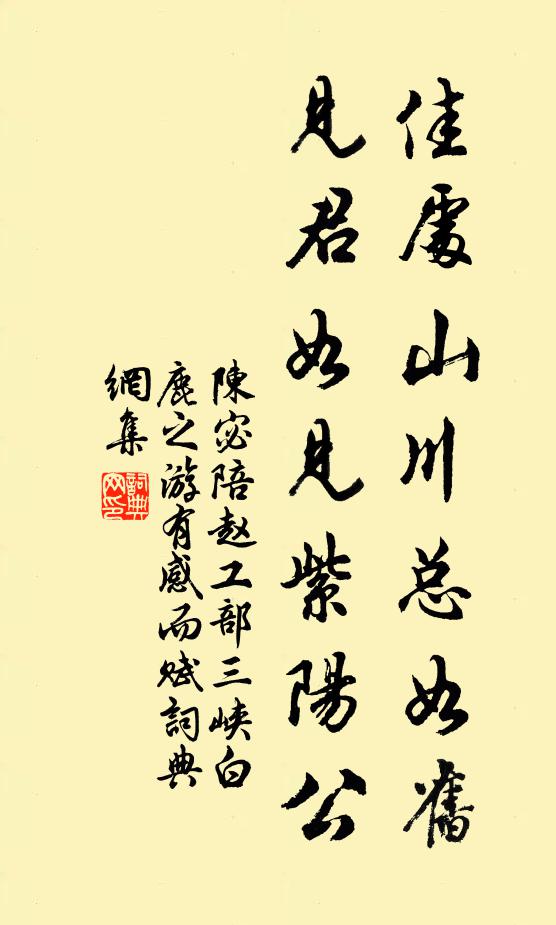 佳處山川总如舊
見君如見紫陽公
陳宓陪赵工部三峽白
鹿之游有感而赋詞典
網集
詞典
网印